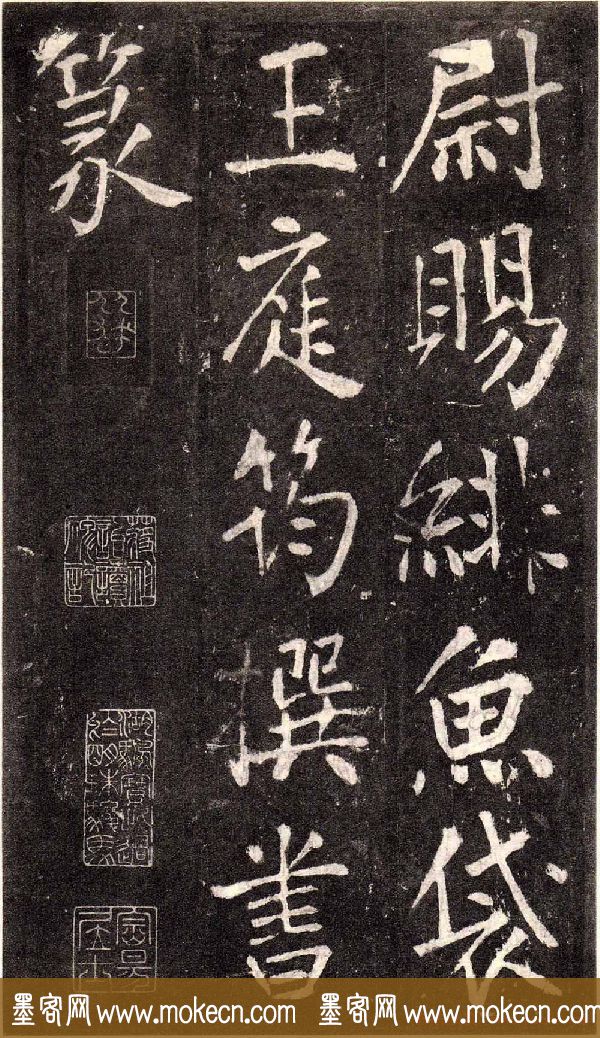 尉賜緋魚袋
王庭筠撰書
篆
墨客网 www.mokecn.com 墨客网 www.mokecn.com